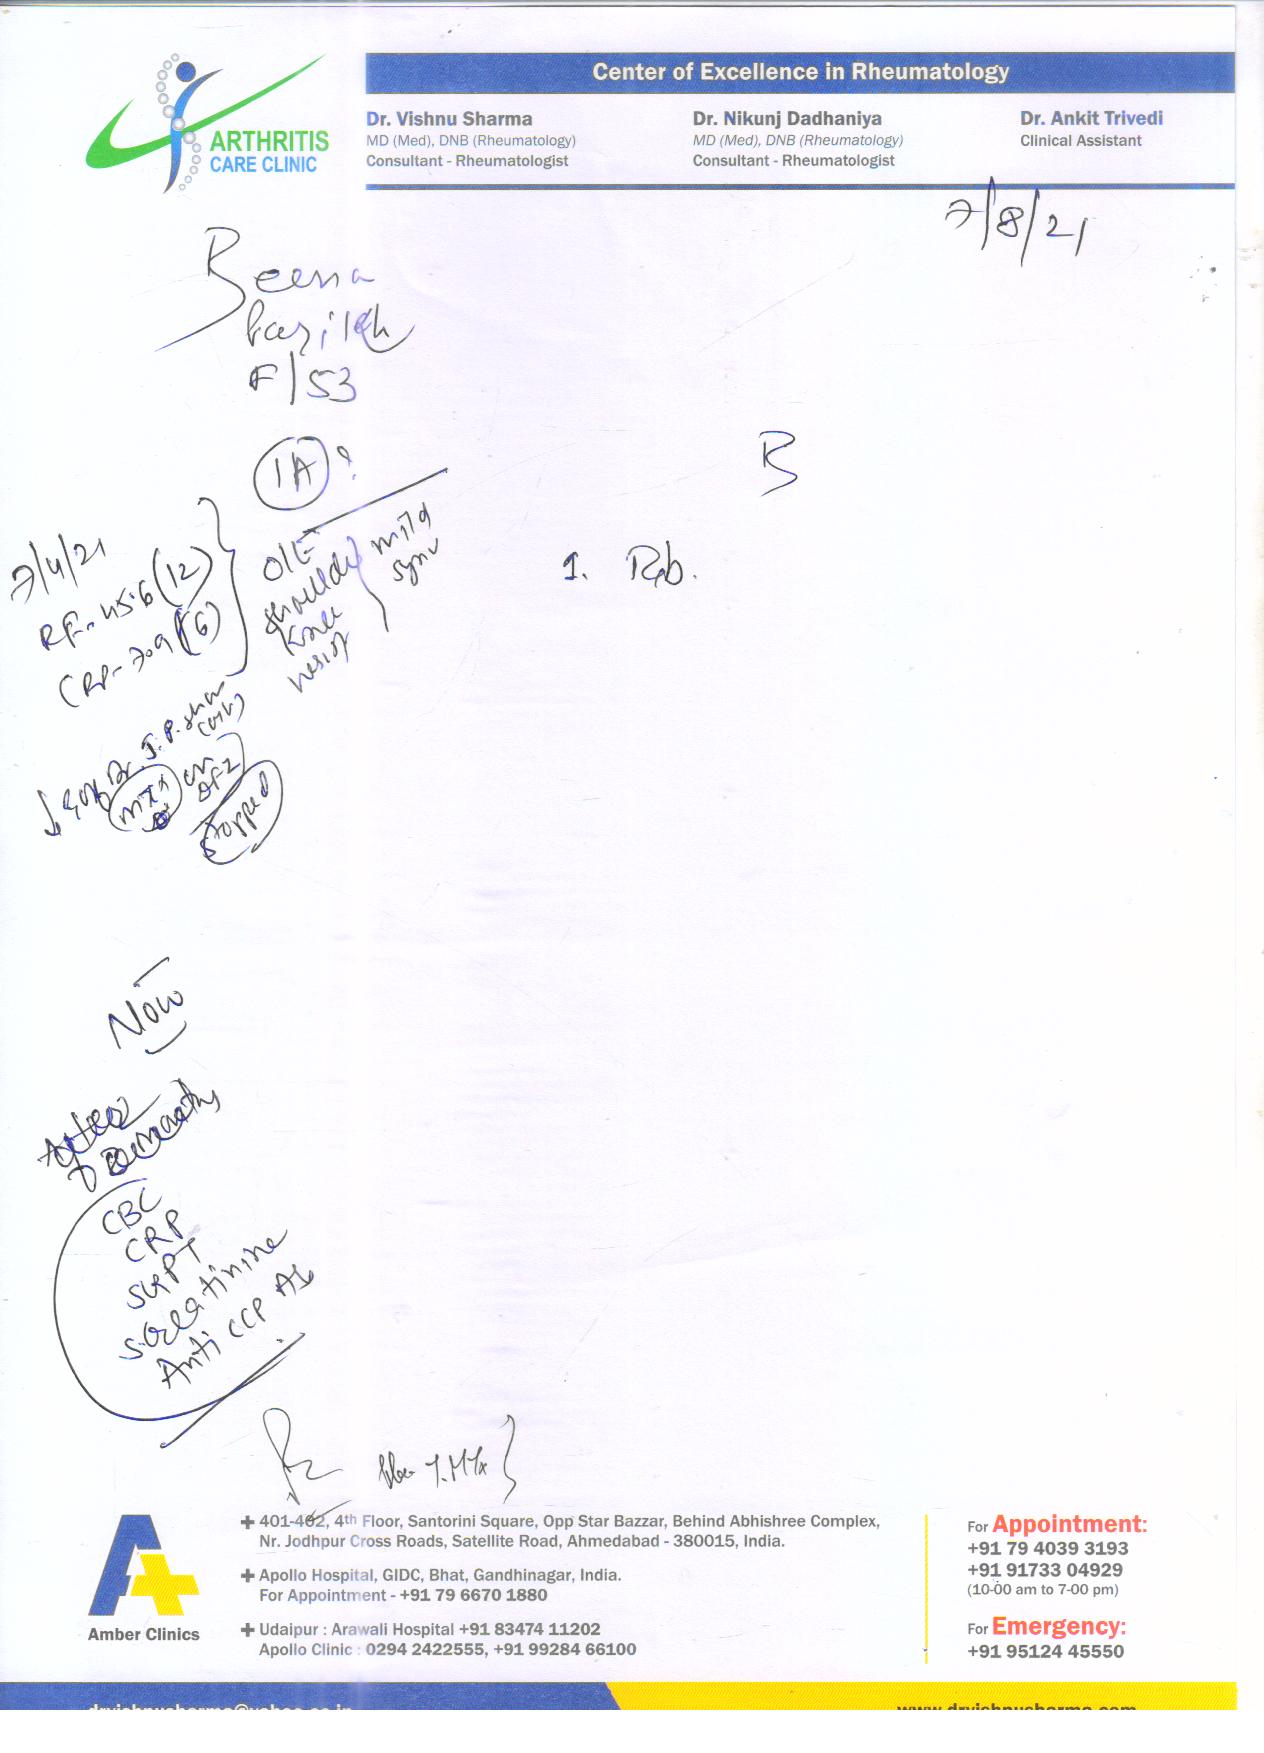 Center of Excellence in Rheumatology
ARTHRITIS
CARE CLINIC
Dr. Vishnu Sharma
MD (Med), DNB (Rheumatology)
Consultant - Rheumatologist
Dr. Nikunj Dadhaniya
MD (Med), DNB (Rheumatology)
Consultant - Rheumatologist
Dr. Ankit Trivedi
Clinical Assistant
7/8/21
Beena
Parikh
F/53
IA ?
7/4/21
RF- 45.6 (12)
CRP- 7.09 (6)
O/E
shoulder
knee
wrist
mild
syno
Dr. J. P. Shah
MTX
on
stopped
1. Rab.
Now
After
2 months
CBC
CRP
SGPT
S. creatinine
Anti CCP Ab
T. MTx
401-402, 4th Floor, Santorini Square, Opp Star Bazzar, Behind Abhishree Complex,
Nr. Jodhpur Cross Roads, Satellite Road, Ahmedabad - 380015, India.
Apollo Hospital, GIDC, Bhat, Gandhinagar, India.
For Appointment - +91 79 6670 1880
Udaipur : Arawali Hospital +91 83474 11202
Apollo Clinic : 0294 2422555, +91 99284 66100
Amber Clinics
For Appointment:
+91 79 4039 3193
+91 91733 04929
(10-00 am to 7-00 pm)
For Emergency:
+91 95124 45550
drvishnusharma@yahoo.co.in
www.drvishnusharma.com